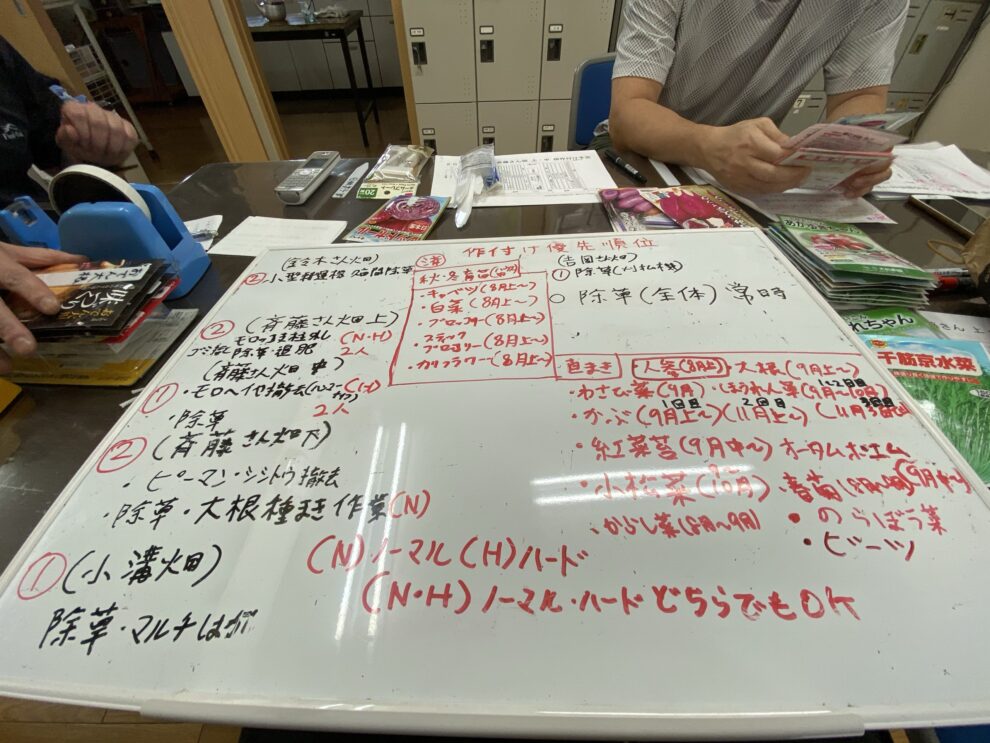 作付け優先順位
(鈴木さん畑)
② 小型耕運機 除草
(斉藤さん畑上)
②
除草・追肥
(N・H)
2人
(斉藤さん畑中)
①
・モロヘイヤ撤去
・除草
2人
(斉藤さん畑下)
②
・ピーマン・シシトウ撤去
・除草・大根種まき作業(N)
① (小溝畑)
除草・マルチはが
済
秋・冬育苗
・キャベツ(8月上〜)
・白菜(8月上〜)
・ブロッコリー(8月上〜)
・スティック
ブロッコリー(8月上〜)
・カリフラワー(8月上〜)
(吉岡さん畑)
① 除草(刈払機)
○ 除草(全体)常時
直まき
人参(8月上) 大根(9月上〜)
・わさび菜(9月)・ほうれん草(9月〜10月)
1回目 2回目
・かぶ(9月上〜)(11月上〜)
・紅菜苔(9月中〜) オータムポエム
・小松菜(9.10月)・春菊
(9月中〜)
・からし菜(8月〜9月)
・のらぼう菜
・ビーツ
(N)ノーマル(H)ハード
(N・H)ノーマル・ハードどちらでもOK
千筋京水菜
れちゃん